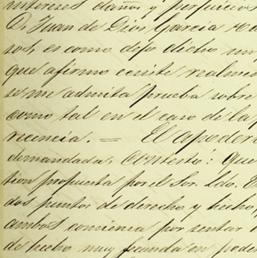 intereses daños y perjuicios
D. Juan de Dios Garcia
es como dijo dicho un
que afirmo existe realme
se me admita prueba sobre
como tal en el caso de la p
recencia. — El apoder
demandada, Contesto: Que
tion propuesta por el Sor. Ldo.
dos puntos de derecho y hecho,
ambos comienza por sentar
de hecho muy fecunda en